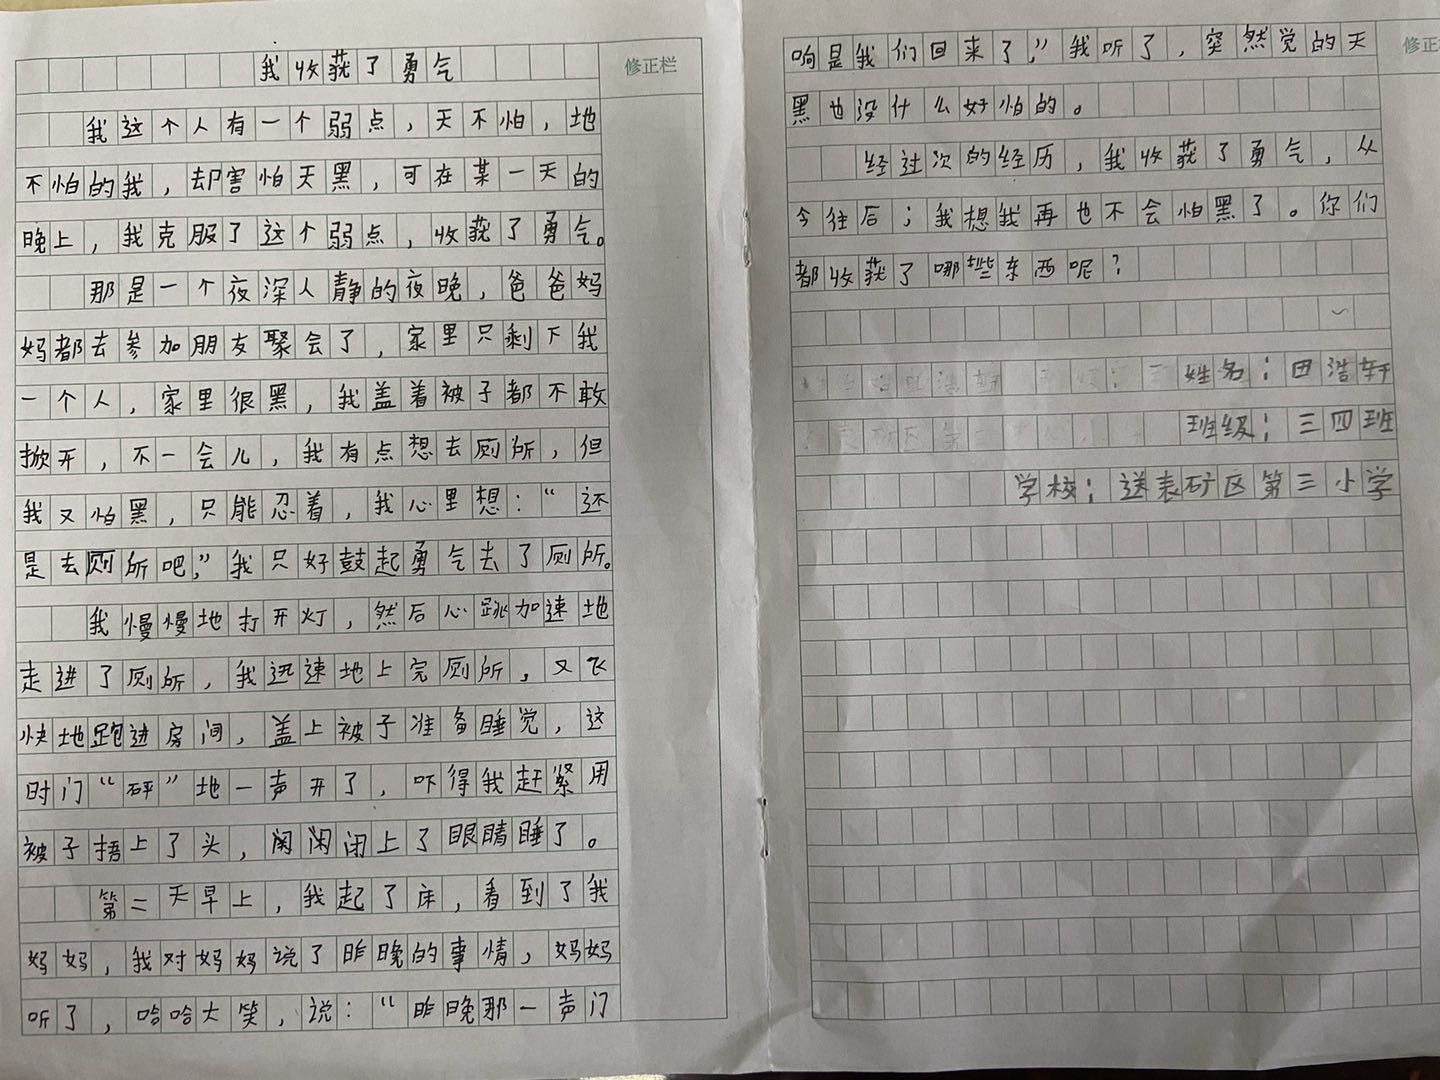 我收获了勇气
修正栏
我这个人有一个弱点，天不怕，地
不怕的我，却害怕天黑，可在某一天的
晚上，我克服了这个弱点，收获了勇气。
那是一个夜深人静的夜晚，爸爸妈
妈都去参加朋友聚会了，家里只剩下我
一个人，家里很黑，我盖着被子都不敢
掀开，不一会儿，我有点想去厕所，但
我又怕黑，只能忍着，我心里想：“还
是去厕所吧，”我只好鼓起勇气去了厕所。
我慢慢地打开灯，然后心跳加速地
走进了厕所，我迅速地上完厕所，又飞
快地跑进房间，盖上被子准备睡觉，这
时门“砰”地一声开了，吓得我赶紧用
被子捂上了头，闭上了眼睛睡了。
第二天早上，我起了床，看到了我
妈妈，我对妈妈说了昨晚的事情，妈妈
听了，哈哈大笑，说：“昨晚那一声门
响是我们回来了，”我听了，突然觉的天
黑也没什么好怕的。
经过次的经历，我收获了勇气，从
今往后；我想我再也不会怕黑了。你们
都收获了哪些东西呢？
姓名：田浩轩
班级：三四班
学校：送表矿区第三小学
修正